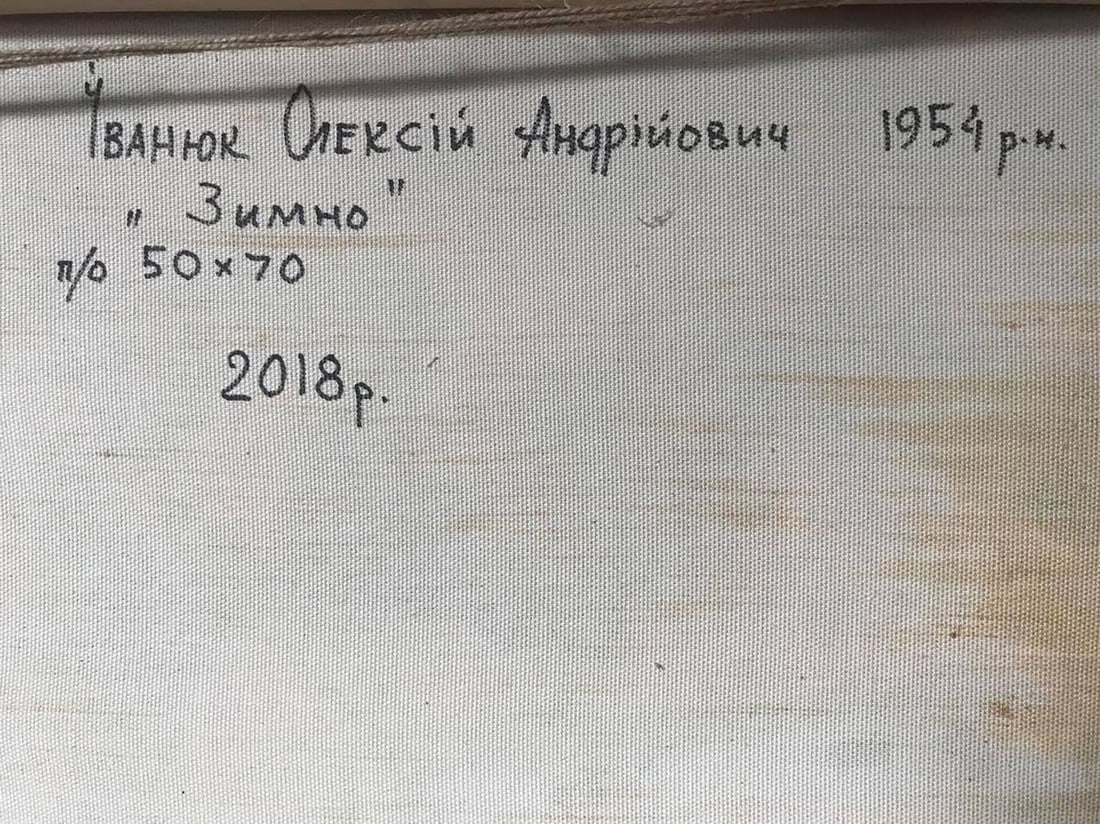 Іванюк Олексій Андрійович 1954 р.н.
„ Зимно "
п/о 50×70
2018р.